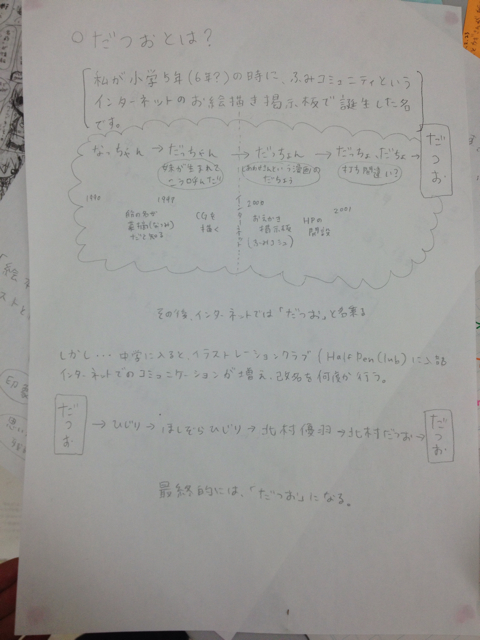 ○ だつおとは?
私が小学5年(6年?)の時に、ふみコミュニティという
インターネットのお絵描き掲示板で誕生した名
です。
なっちゃん → だっちゃん → だっちょん → だっちょ、だちょ → だつお
妹が生まれて
こう呼んだり
という漫画の
だちょう
打ち間違い?
1990
1997
2000
2001
インターネット
CGを
描く
おえかき
掲示板
(ふみコミュ)
HPの
開設
その後、インターネットでは「だつお」と名乗る
しかし... 中学に入ると、イラストレーションクラブ(Half Pen Club)に入部
インターネットでのコミュニケーションが増え、改名を何度か行う。
だつお → ひじり → ほしぞらひじり → 北村優羽 → 北村だつお → だつお
最終的には、「だつお」になる。